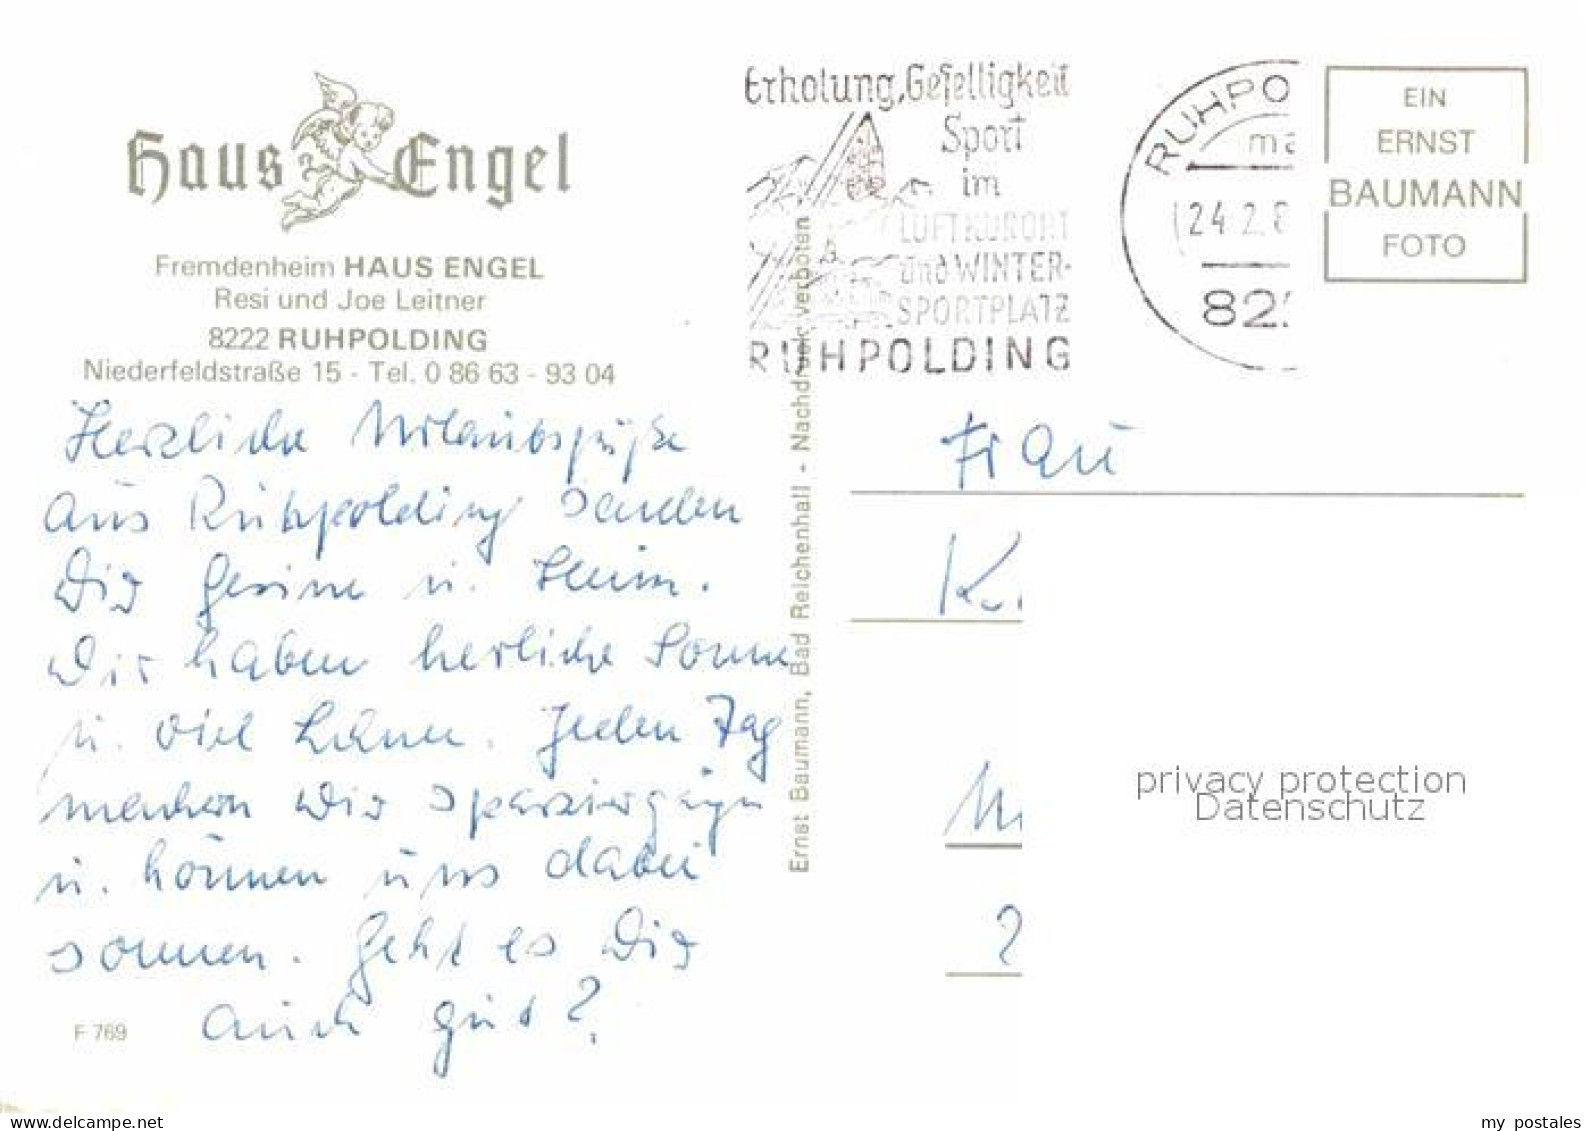 Haus Engel
Fremdenheim HAUS ENGEL
Resi und Joe Leitner
8222 RUHPOLDING
Niederfeldstraße 15 - Tel. 0 86 63 - 93 04
Herzliche Urlaubsgrüße
aus Ruhpolding senden
Dir Gesine u. Heim.
Wir haben herliche Sonne
u. viel Schnee. Jeden Tag
machen wir Spaziergänge
u. können uns dabei
sonnen. Geht es Dir
auch gut?
F 769
Ernst Baumann, Bad Reichenhall - Nachdruck verboten
Erholung, Geselligkeit
Sport
im
LUFTKURORT
und WINTER-
SPORTPLATZ
RUHPOLDING
RUHPO
24.2.8
822
EIN
ERNST
BAUMANN
FOTO
Frau
privacy protection
Datenschutz
my postales